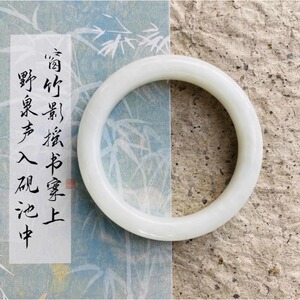 窗竹影摇书案上
野泉声入砚池中